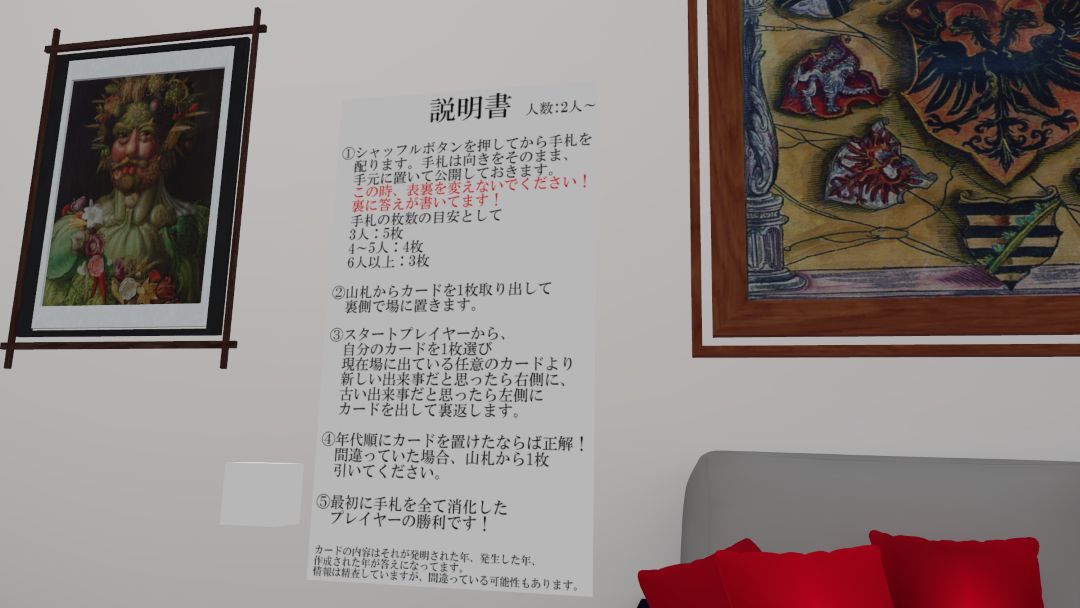 説明書 人数:2人~
①シャッフルボタンを押してから手札を
配ります。手札は向きをそのまま、
手元に置いて公開しておきます。
この時、表裏を変えないでください！
裏に答えが書いてます！
手札の枚数の目安として
3人：5枚
4~5人：4枚
6人以上：3枚
②山札からカードを1枚取り出して
裏側で場に置きます。
③スタートプレイヤーから、
自分のカードを1枚選び
現在場に出ている任意のカードより
新しい出来事だと思ったら右側に、
古い出来事だと思ったら左側に
カードを出して裏返します。
④年代順にカードを置けたならば正解！
間違っていた場合、山札から1枚
引いてください。
⑤最初に手札を全て消化した
プレイヤーの勝利です！
カードの内容はそれが発明された年、発生した年、
作成された年が答えになってます。
情報は精査していますが、間違っている可能性もあります。